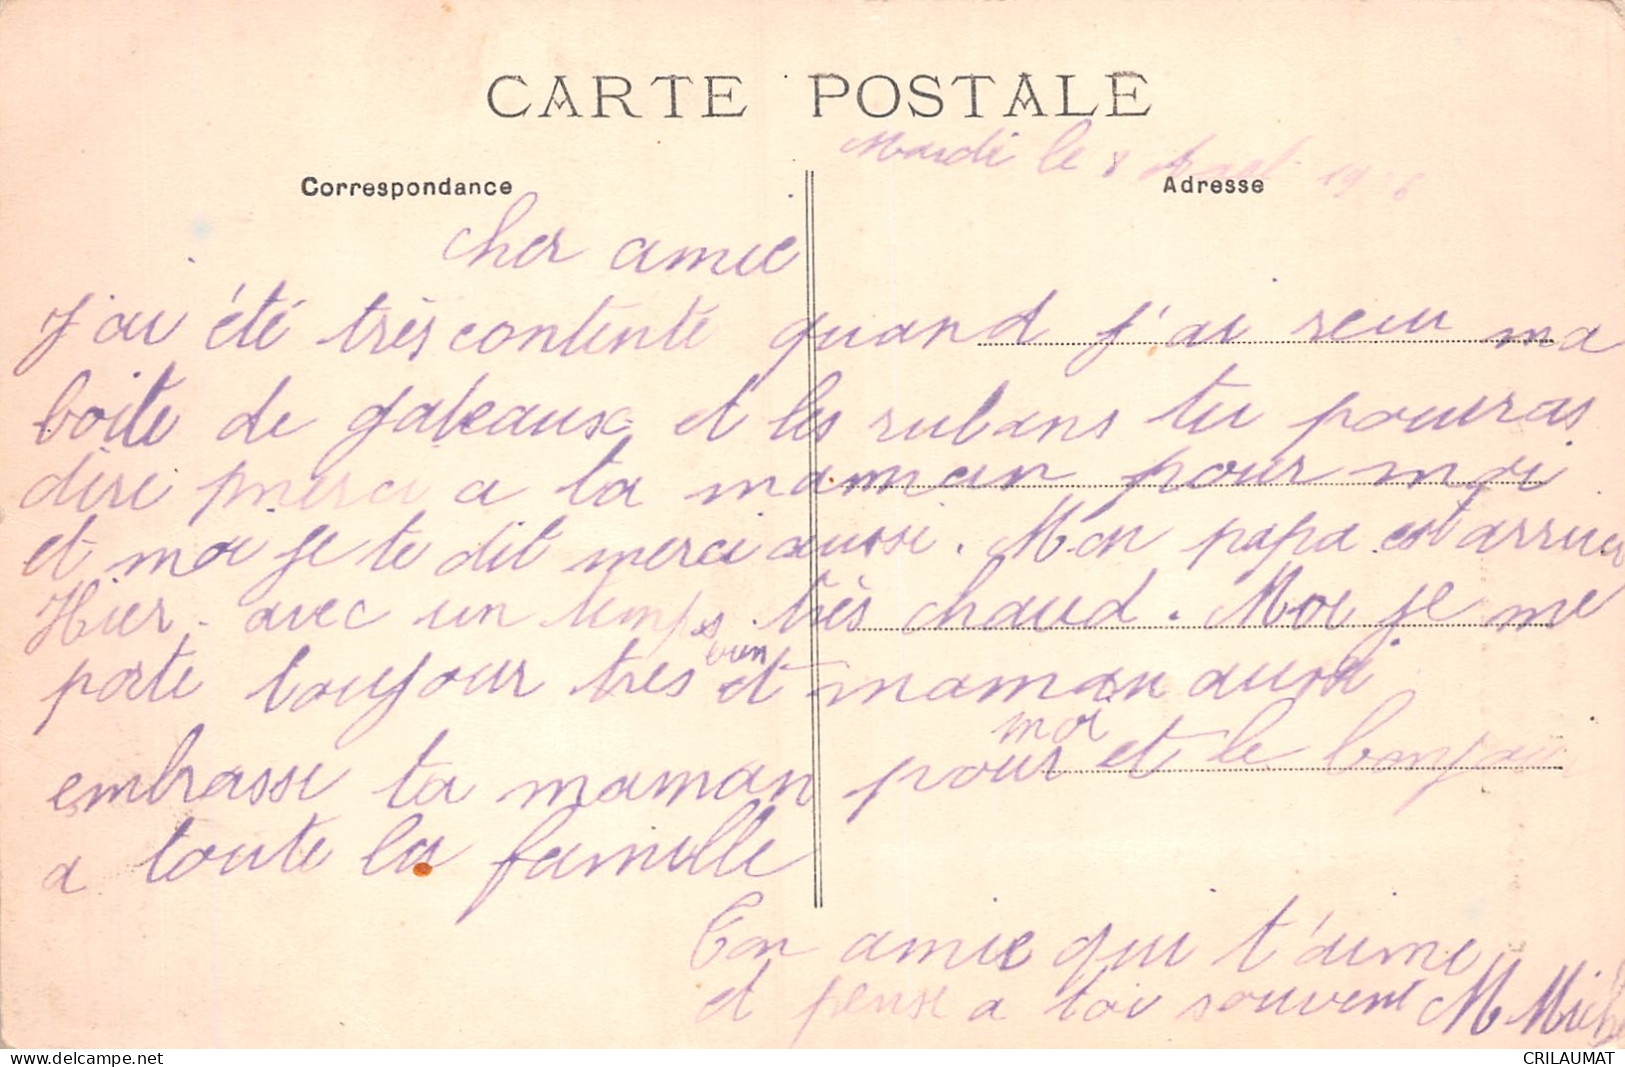 CARTE POSTALE
Mardi le 8
Correspondance
Adresse
cher amie
J'ai été très contente quand j'ai recu ma
boite de gateaux et les rubans tu pouras
dire merci a ta maman pour moi
et moi je te dit merci aussi. Mon papa est arrivé
Hier. avec un temps très chaud. Moi je me
porte toujour tres bien et maman aussi
embrasse ta maman pour moi et le bonjour
a toute la famille
Ton amie qui t'aime
et pense a toi souvent M Mich
CRILAUMAT